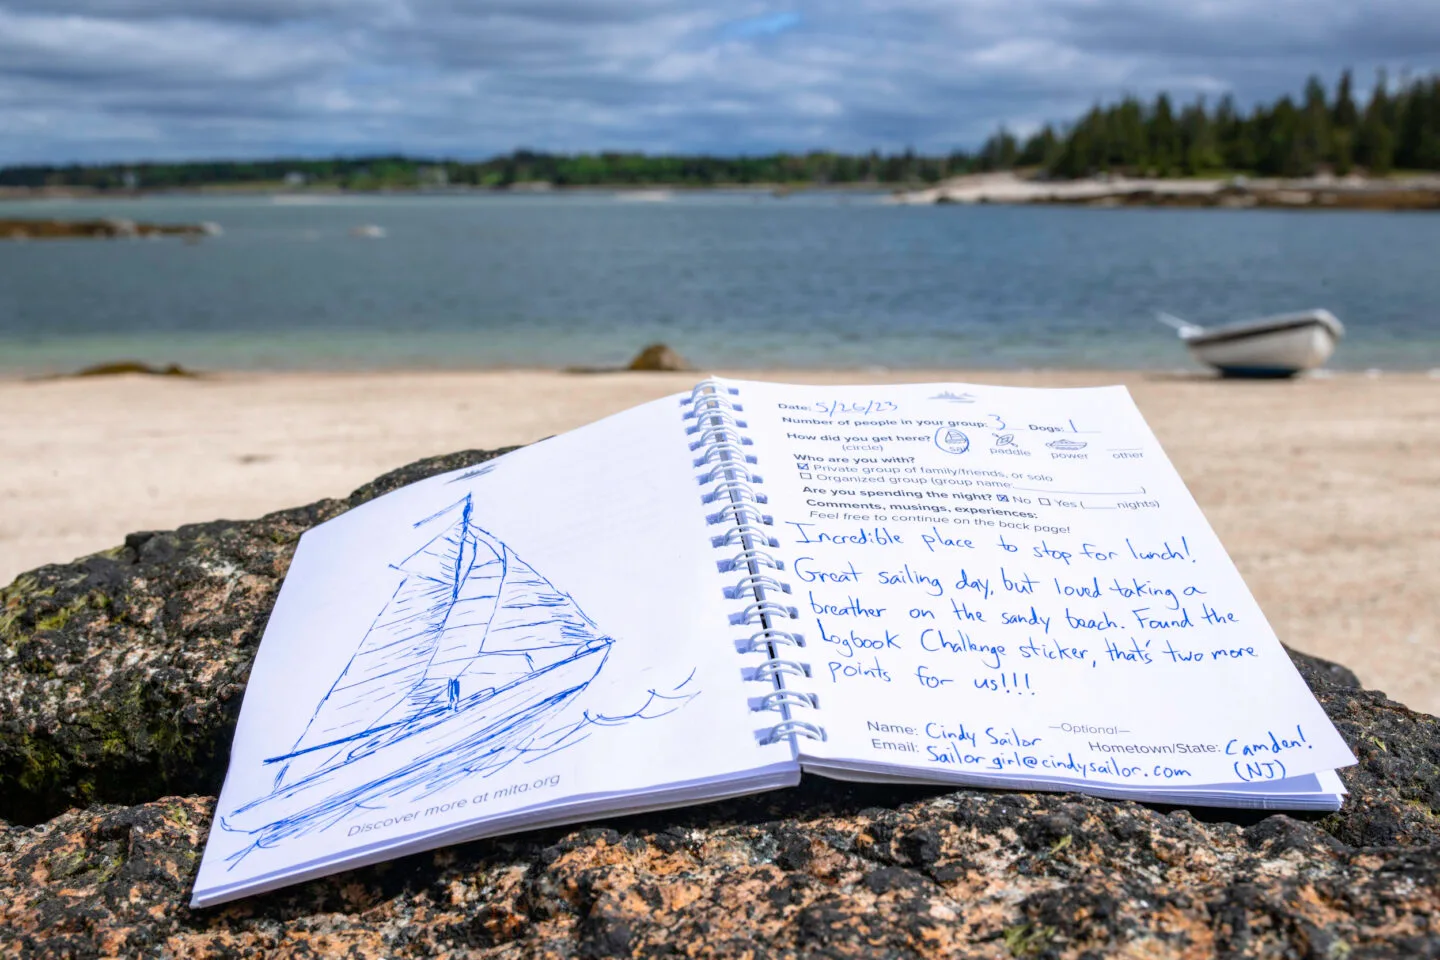 Date: 5/26/23
Number of people in your group: 3 Dogs: 1
How did you get here? sail paddle power other
(circle)
Who are you with?
☒ Private group of family/friends, or solo
☐ Organized group (group name:____________)
Are you spending the night? ☒ No ☐ Yes (____nights)
Comments, musings, experiences:
Feel free to continue on the back page!
Incredible place to stop for lunch!
Great sailing day, but loved taking a
breather on the sandy beach. Found the
Logbook Challenge sticker, that's two more
points for us!!!
—Optional—
Name: Cindy Sailor Hometown/State: Camden!
Email: Sailor girl@cindysailor.com (NJ)
Discover more at mita.org